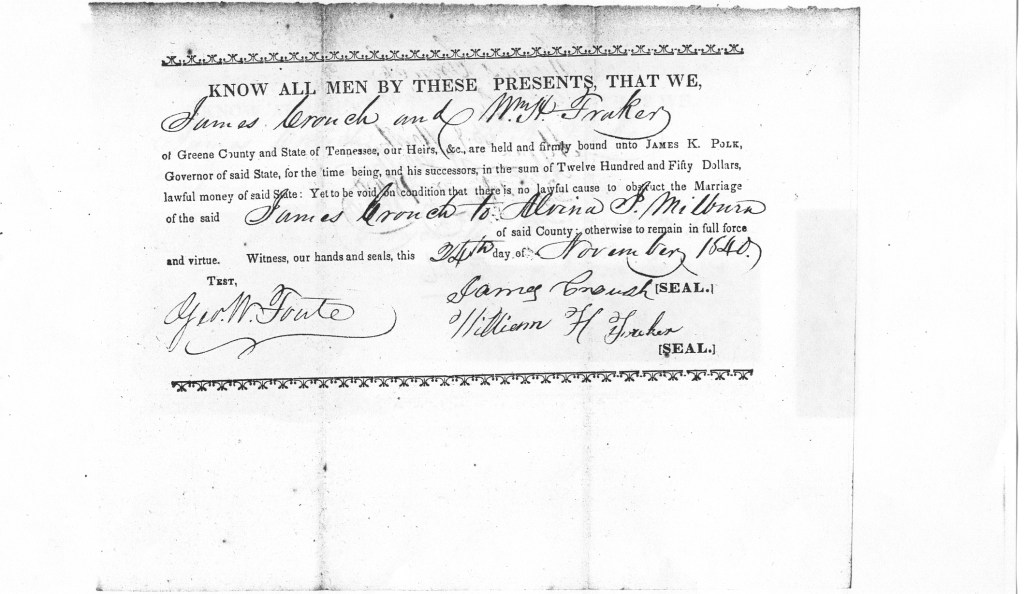 KNOW ALL MEN BY THESE PRESENTS, THAT WE,
James Crouch and Wm H. Fraker
of Greene County and State of Tennessee, our Heirs, &c., are held and firmly bound unto JAMES K. POLK,
Governor of said State, for the time being, and his successors, in the sum of Twelve Hundred and Fifty Dollars,
lawful money of said State: Yet to be void on condition that there is no lawful cause to obstruct the Marriage
of the said James Crouch to Alvina J. Milburn
of said County; otherwise to remain in full force
and virtue. Witness, our hands and seals, this 24th day of November 1840.
TEST,
James Crouch [SEAL.]
Geo. W. Foute
William H Fraker
[SEAL.]